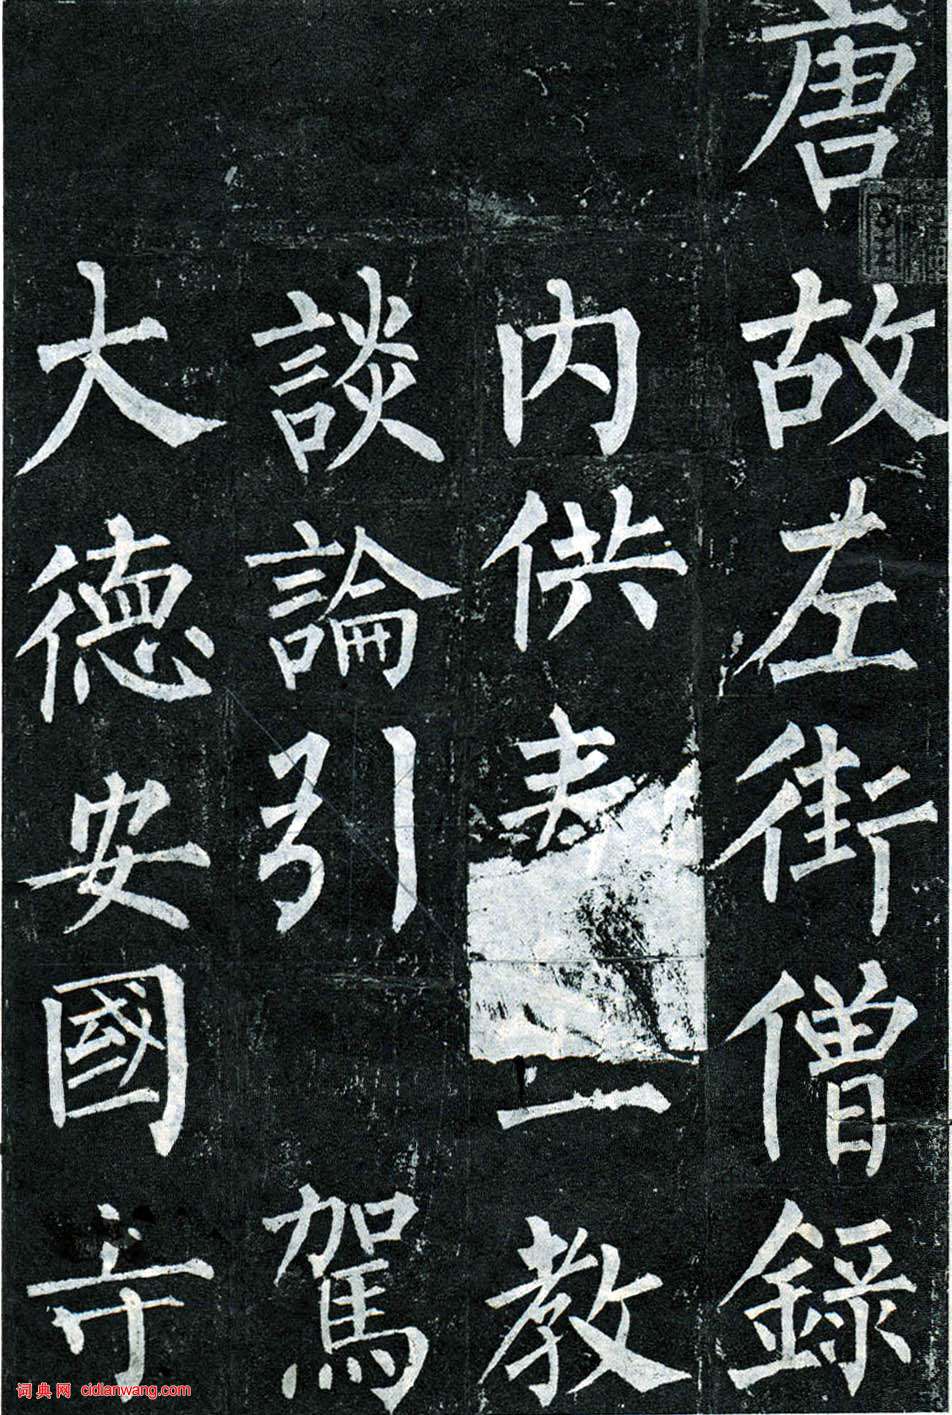 唐故左街僧錄
內供奉三教
談論引 駕
大德安國寺
词典网 cidianwang.com